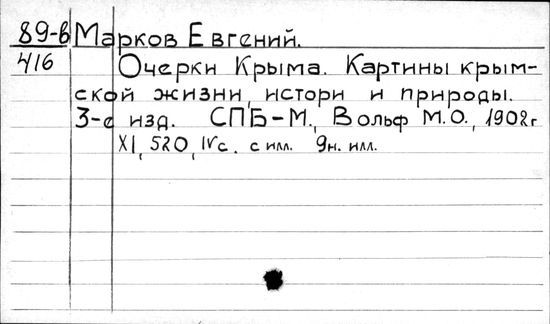 89-в Марков Евгений.
416 Очерки Крыма. Картины крым-
ской жизни, истори и природы.
3-е изд. СПБ-М., Вольф М.О., 1902г
XI, 520, IVс. с илл. 9н. илл.